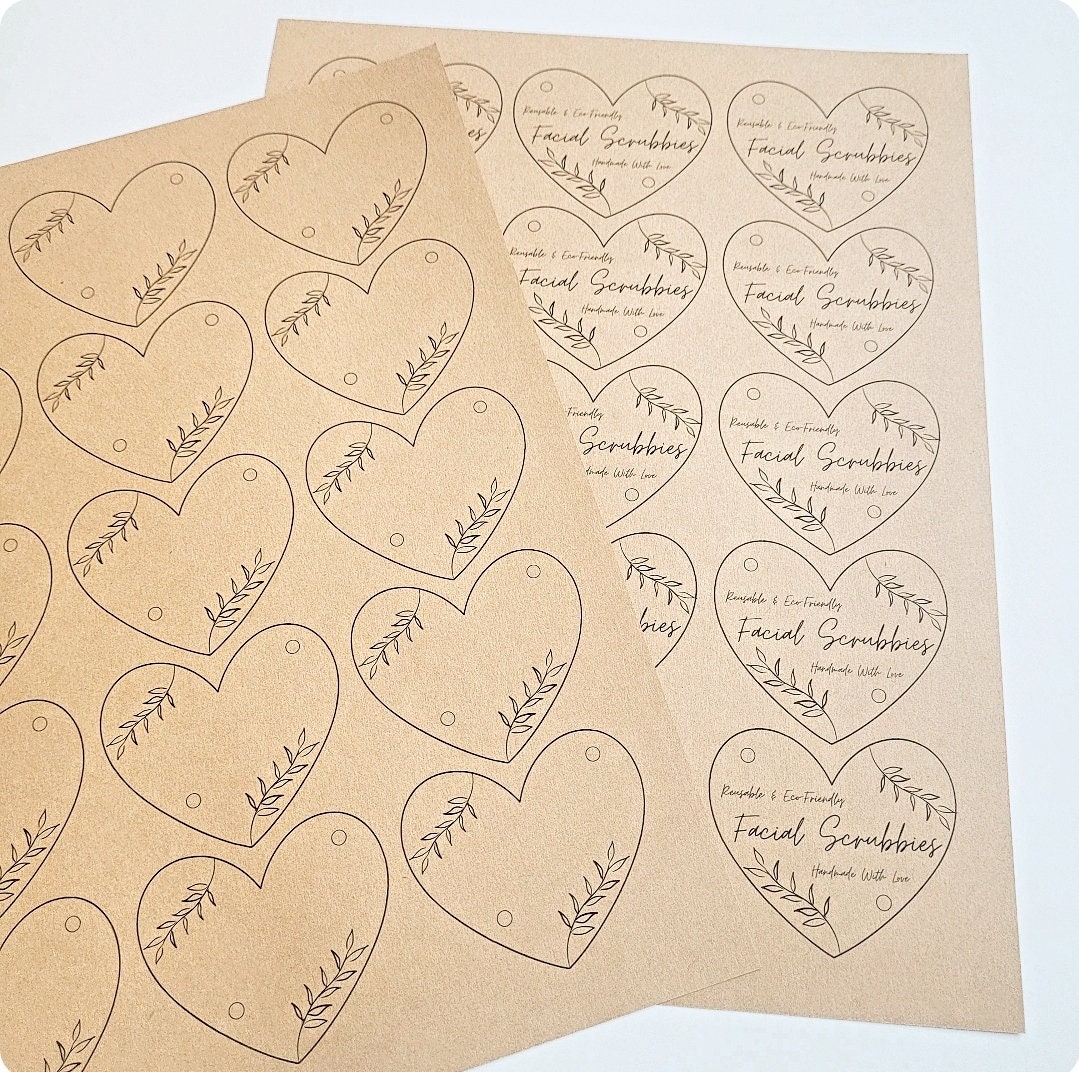 bies
Reusable & Eco-Friendly
Facial Scrubbies
Handmade With Love
Reusable & Eco-Friendly
Facial Scrubbies
Handmade With Love
Reusable & Eco-Friendly
Facial Scrubbies
Handmade With Love
Reusable & Eco-Friendly
Facial Scrubbies
Handmade With Love
Friendly
Scrubbies
dmade With Love
Reusable & Eco-Friendly
Facial Scrubbies
Handmade With Love
bies
Reusable & Eco-Friendly
Facial Scrubbies
Handmade With Love
Reusable & Eco-Friendly
Facial Scrubbies
Handmade With Love